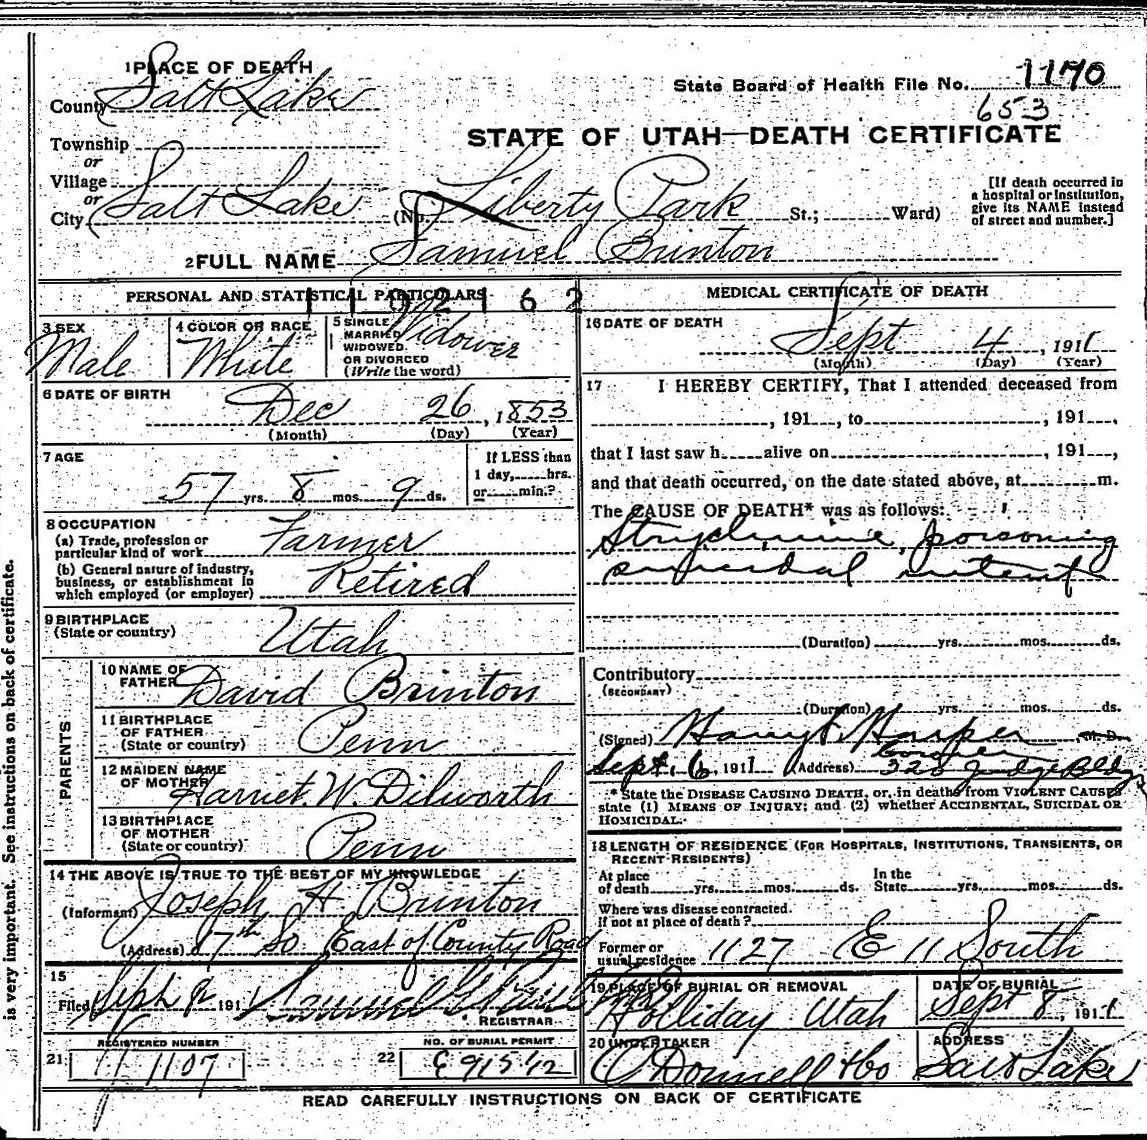 1 PLACE OF DEATH
County Salt Lake
State Board of Health File No. 1170
653
STATE OF UTAH—DEATH CERTIFICATE
Township
or
Village
or
City Salt Lake (No. Liberty Park St.; Ward)
[If death occurred in a hospital or institution, give its NAME instead of street and number.]
2 FULL NAME Samuel Brinton
PERSONAL AND STATISTICAL PARTICULARS
1102162
3 SEX
Male
4 COLOR OR RACE
White
5 SINGLE
MARRIED
WIDOWED
OR DIVORCED
(Write the word)
Widower
6 DATE OF BIRTH
Dec 26, 1853
(Month) (Day) (Year)
7 AGE
57 yrs. 8 mos. 9 ds.
If LESS than
1 day, hrs.
or min.?
8 OCCUPATION
(a) Trade, profession or
particular kind of work Farmer
(b) General nature of industry,
business, or establishment in
which employed (or employer) Retired
9 BIRTHPLACE
(State or country) Utah
PARENTS
10 NAME OF
FATHER David Brinton
11 BIRTHPLACE
OF FATHER
(State or country) Penn
12 MAIDEN NAME
OF MOTHER Harriet W. Dilworth
13 BIRTHPLACE
OF MOTHER
(State or country) Penn
14 THE ABOVE IS TRUE TO THE BEST OF MY KNOWLEDGE
(Informant) Joseph H Brinton
(Address) 7th So East of County Road
15
Filed Sept 8 191
REGISTRAR
REGISTERED NUMBER
21 1107
NO. OF BURIAL PERMIT
22
MEDICAL CERTIFICATE OF DEATH
16 DATE OF DEATH
Sept 4, 1911
(Month) (Day) (Year)
17 I HEREBY CERTIFY, That I attended deceased from
, 191 , to , 191 ,
that I last saw h alive on , 191 ,
and that death occurred, on the date stated above, at m.
The CAUSE OF DEATH* was as follows:
Strychnine poisoning
suicidal intent
(Duration) yrs. mos. ds.
Contributory
(SECONDARY)
(Duration) yrs. mos. ds.
(Signed) Harry Harper M. D.
Coroner
Sept. 6, 1911 (Address) 328 Judge Bldg
* State the DISEASE CAUSING DEATH, or, in deaths from VIOLENT CAUSES
state (1) MEANS OF INJURY; and (2) whether ACCIDENTAL, SUICIDAL or
HOMICIDAL.
18 LENGTH OF RESIDENCE (FOR HOSPITALS, INSTITUTIONS, TRANSIENTS, OR
RECENT RESIDENTS)
At place
of death yrs. mos. ds.
In the
State yrs. mos. ds.
Where was disease contracted.
If not at place of death?
Former or
usual residence 1127 E 11 South
19 PLACE OF BURIAL OR REMOVAL
Holliday Utah
DATE OF BURIAL
Sept 8, 1911
20 UNDERTAKER
O'Donnell & Co
ADDRESS
Salt Lake
READ CAREFULLY INSTRUCTIONS ON BACK OF CERTIFICATE
is very important. See instructions on back of certificate.